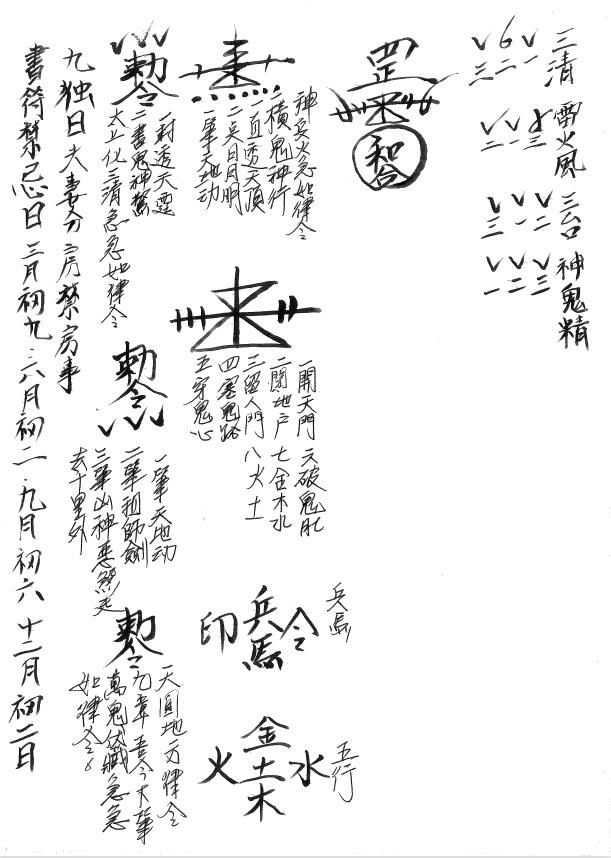 三清
雷火風
三台
神鬼精
罡
和合
神兵火急如律令
一橫鬼神行
一直透天頂
二点日月明
一筆天地动
一開天門 六破鬼肚
二閉地户 七金木水
三留人門 八火土
四塞鬼路
五穿鬼心
兵馬
印 兵馬 令
五行
金
火 土 水
木
勅令
一封透天霊
二書鬼神驚
太上化三清急急如律令
勅令
一筆天地动
二筆祖師劍
三筆山神惡煞走
去十里外
勅令
一天圓地方律令
九章吾今下筆
萬鬼伏藏急急
如律令
九独日夫妻分房禁房事
書符禁忌日 三月初九·六月初二·九月初六 十二月初二日